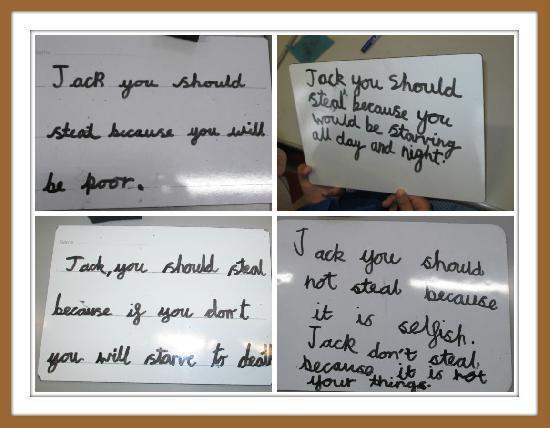 Jack you should
steal because you will
be poor.
Jack you should
steal because you
would be starving
all day and night!
Jack, you should steal
because if you don't
you will starve to
Jack you should
not steal because
it is selfish.
Jack don't steal,
because it is not
your things.